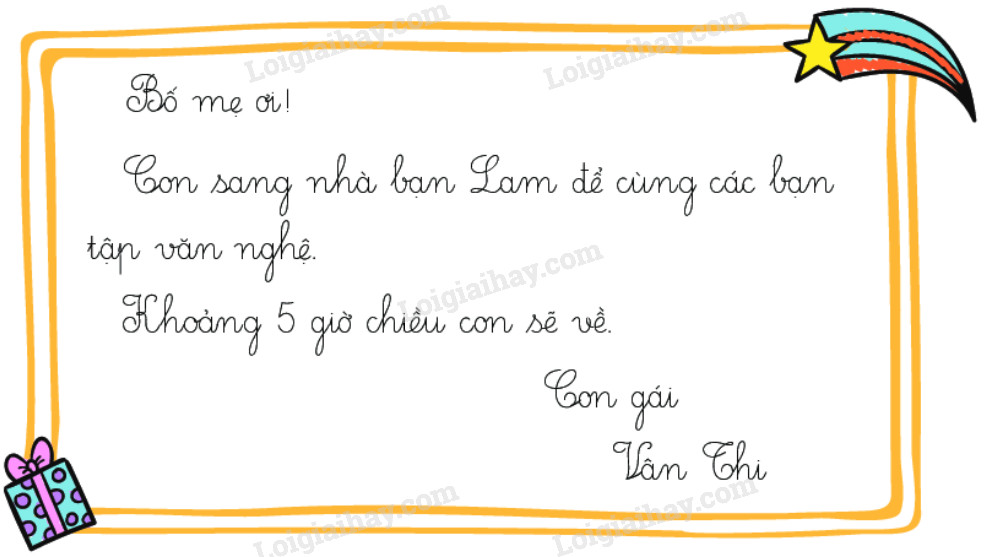 Loigiaihay.com Loigiaihay.com
Bố mẹ ơi!
Con sang nhà bạn Lam để cùng các bạn
tập văn nghệ.
Loigiaihay.com
Khoảng 5 giờ chiều con sẽ về.
Con gái
Vân Thi
Loigiaihay.com Loigiaihay.com